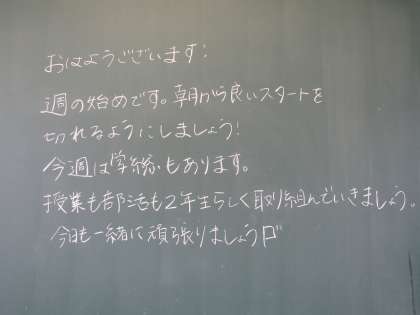 おはようございます!
週の始めです。朝から良いスタートを
切れるようにしましょう!
今週は学総もあります。
授業も部活も2年生らしく取り組んでいきましょう。
今日も一緒に頑張りましょう